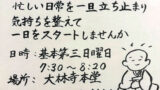 忙しい日常を一旦立ち止まり
気持ちを整えて
一日をスタートしませんか
日時：基本第三日曜日
7:30～8:20
場所：大林寺本堂